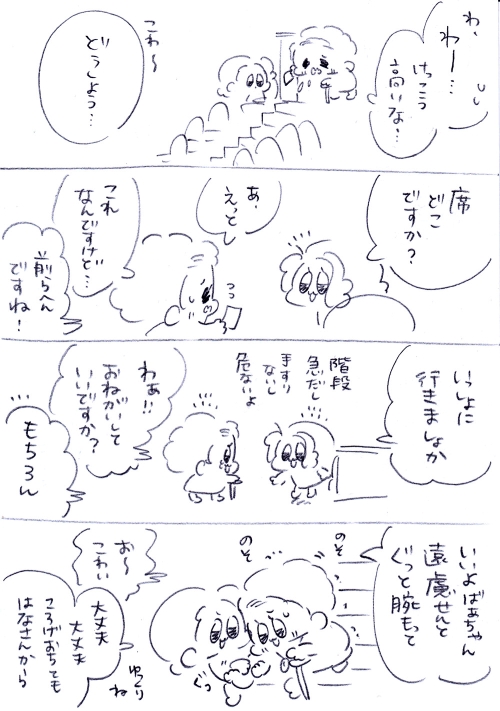 わ、
わー…
けっこう
高いな…
こわ〜
どうしよう…
席
どこ
ですか?
あ、
えっと
これ
なんですけど…
前らへん
ですね!
いっしょに
行きましょか
階段
急だし
手すり
ないし
危ないよ
わあ!!
おねがいして
いいですか?
もちろん
いいよばあちゃん
遠慮せんと
ぐっと腕もって
のそ
のそ
お〜
こわい
ぐっ
ゆっくり
ね
大丈夫
大丈夫
ころげおちても
はなさんから